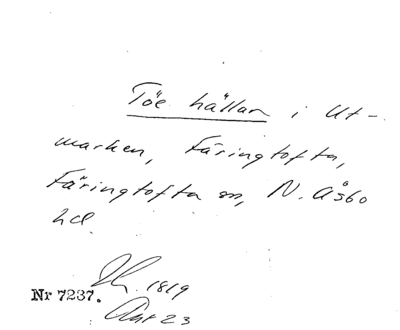 Töe hällan i Ut-
marken, Färingtofta,
Färingtofta sn, N. Åsbo
hd.
1819
Nr 7237.
Akt 23